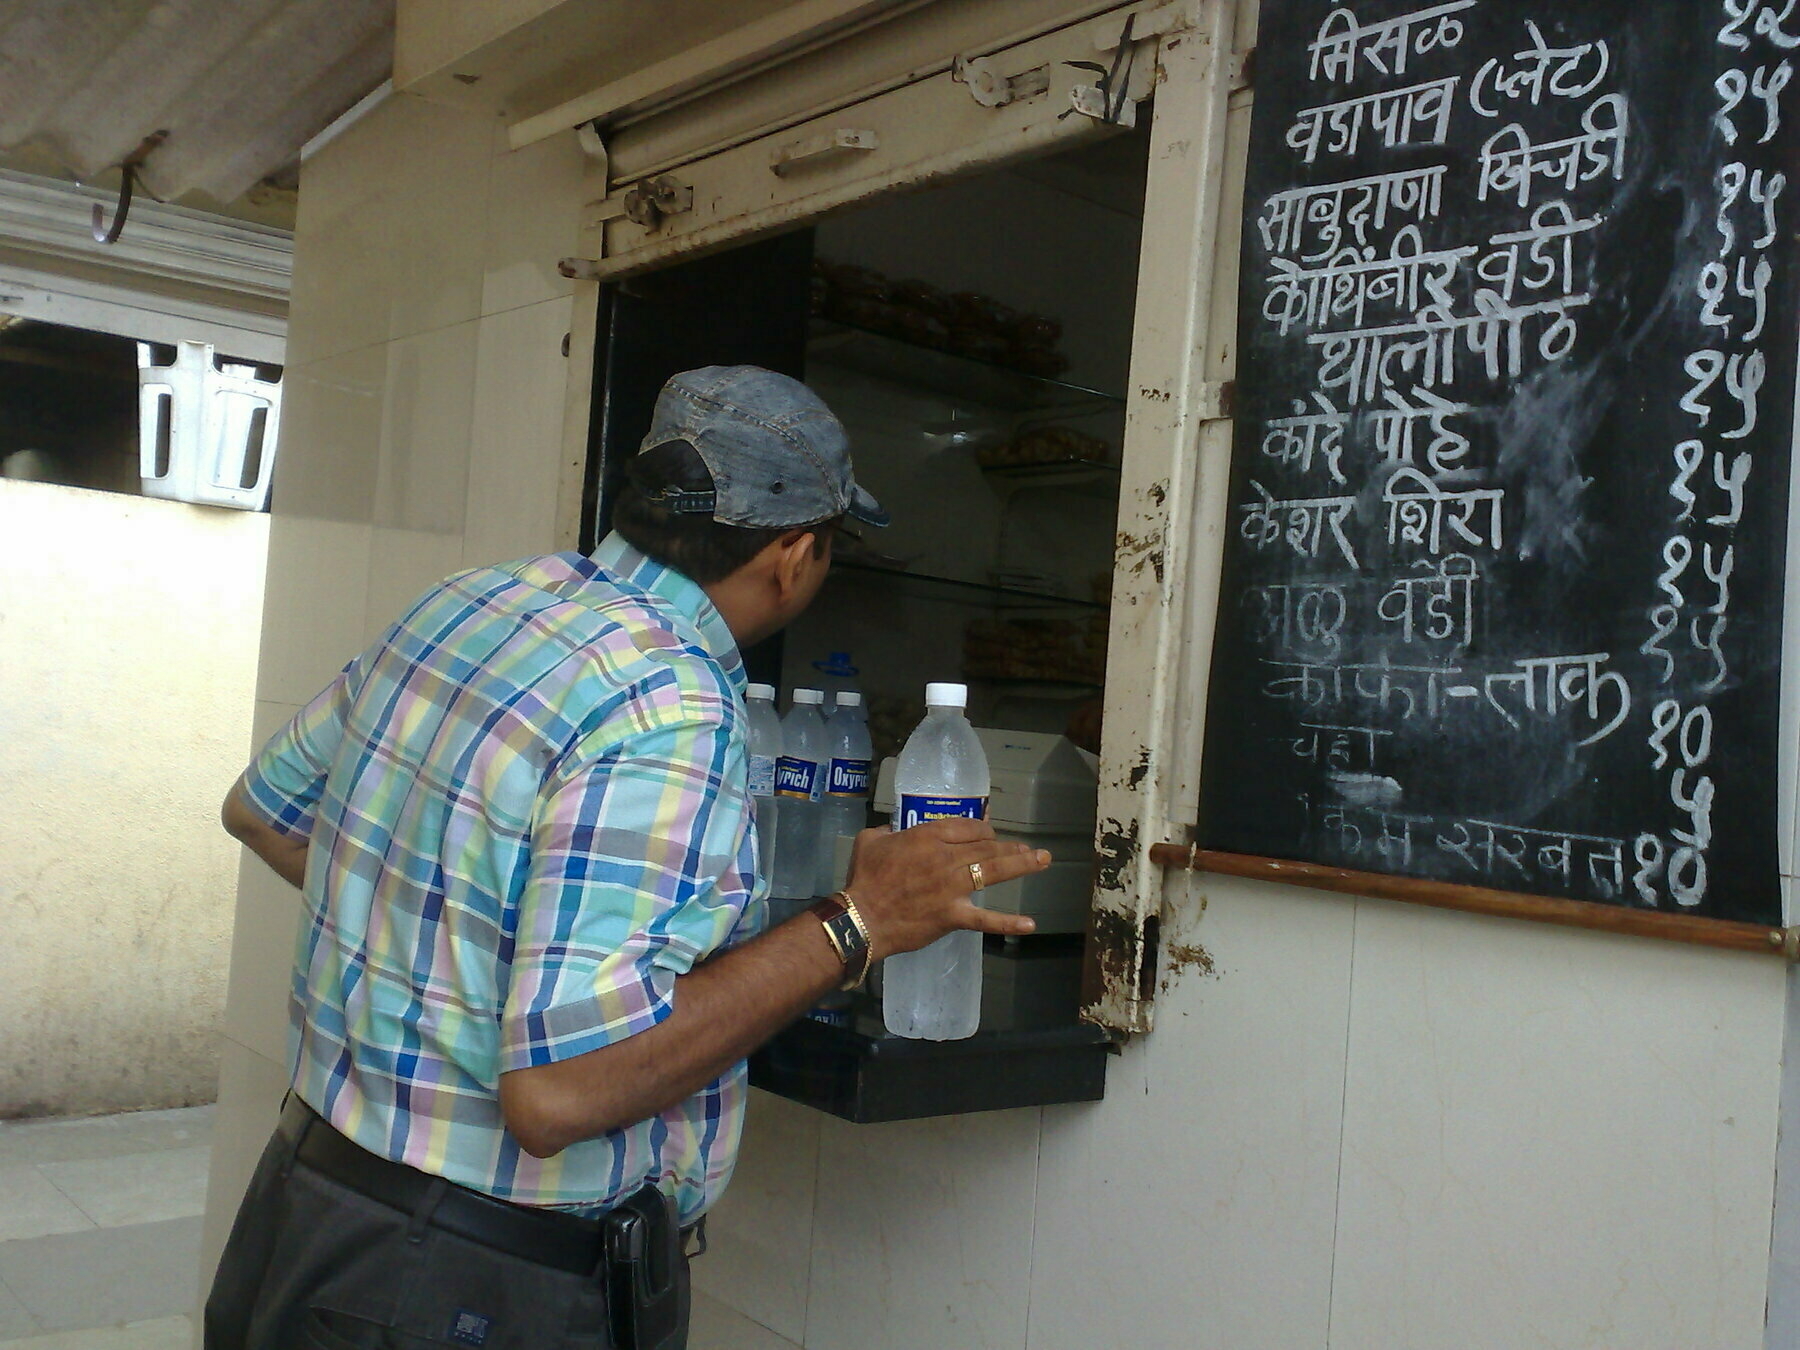 मिसळ १२
वडापाव (प्लेट) १५
साबुदाणा खिचडी १५
कोथिंबीर वडी १५
थालीपीठ १५
कांदे पोहे १५
केशर शिरा १५
अळु वडी १५
कॉफी-ताक १०
चहा ५
कोकम सरबत १०
Oxyrich